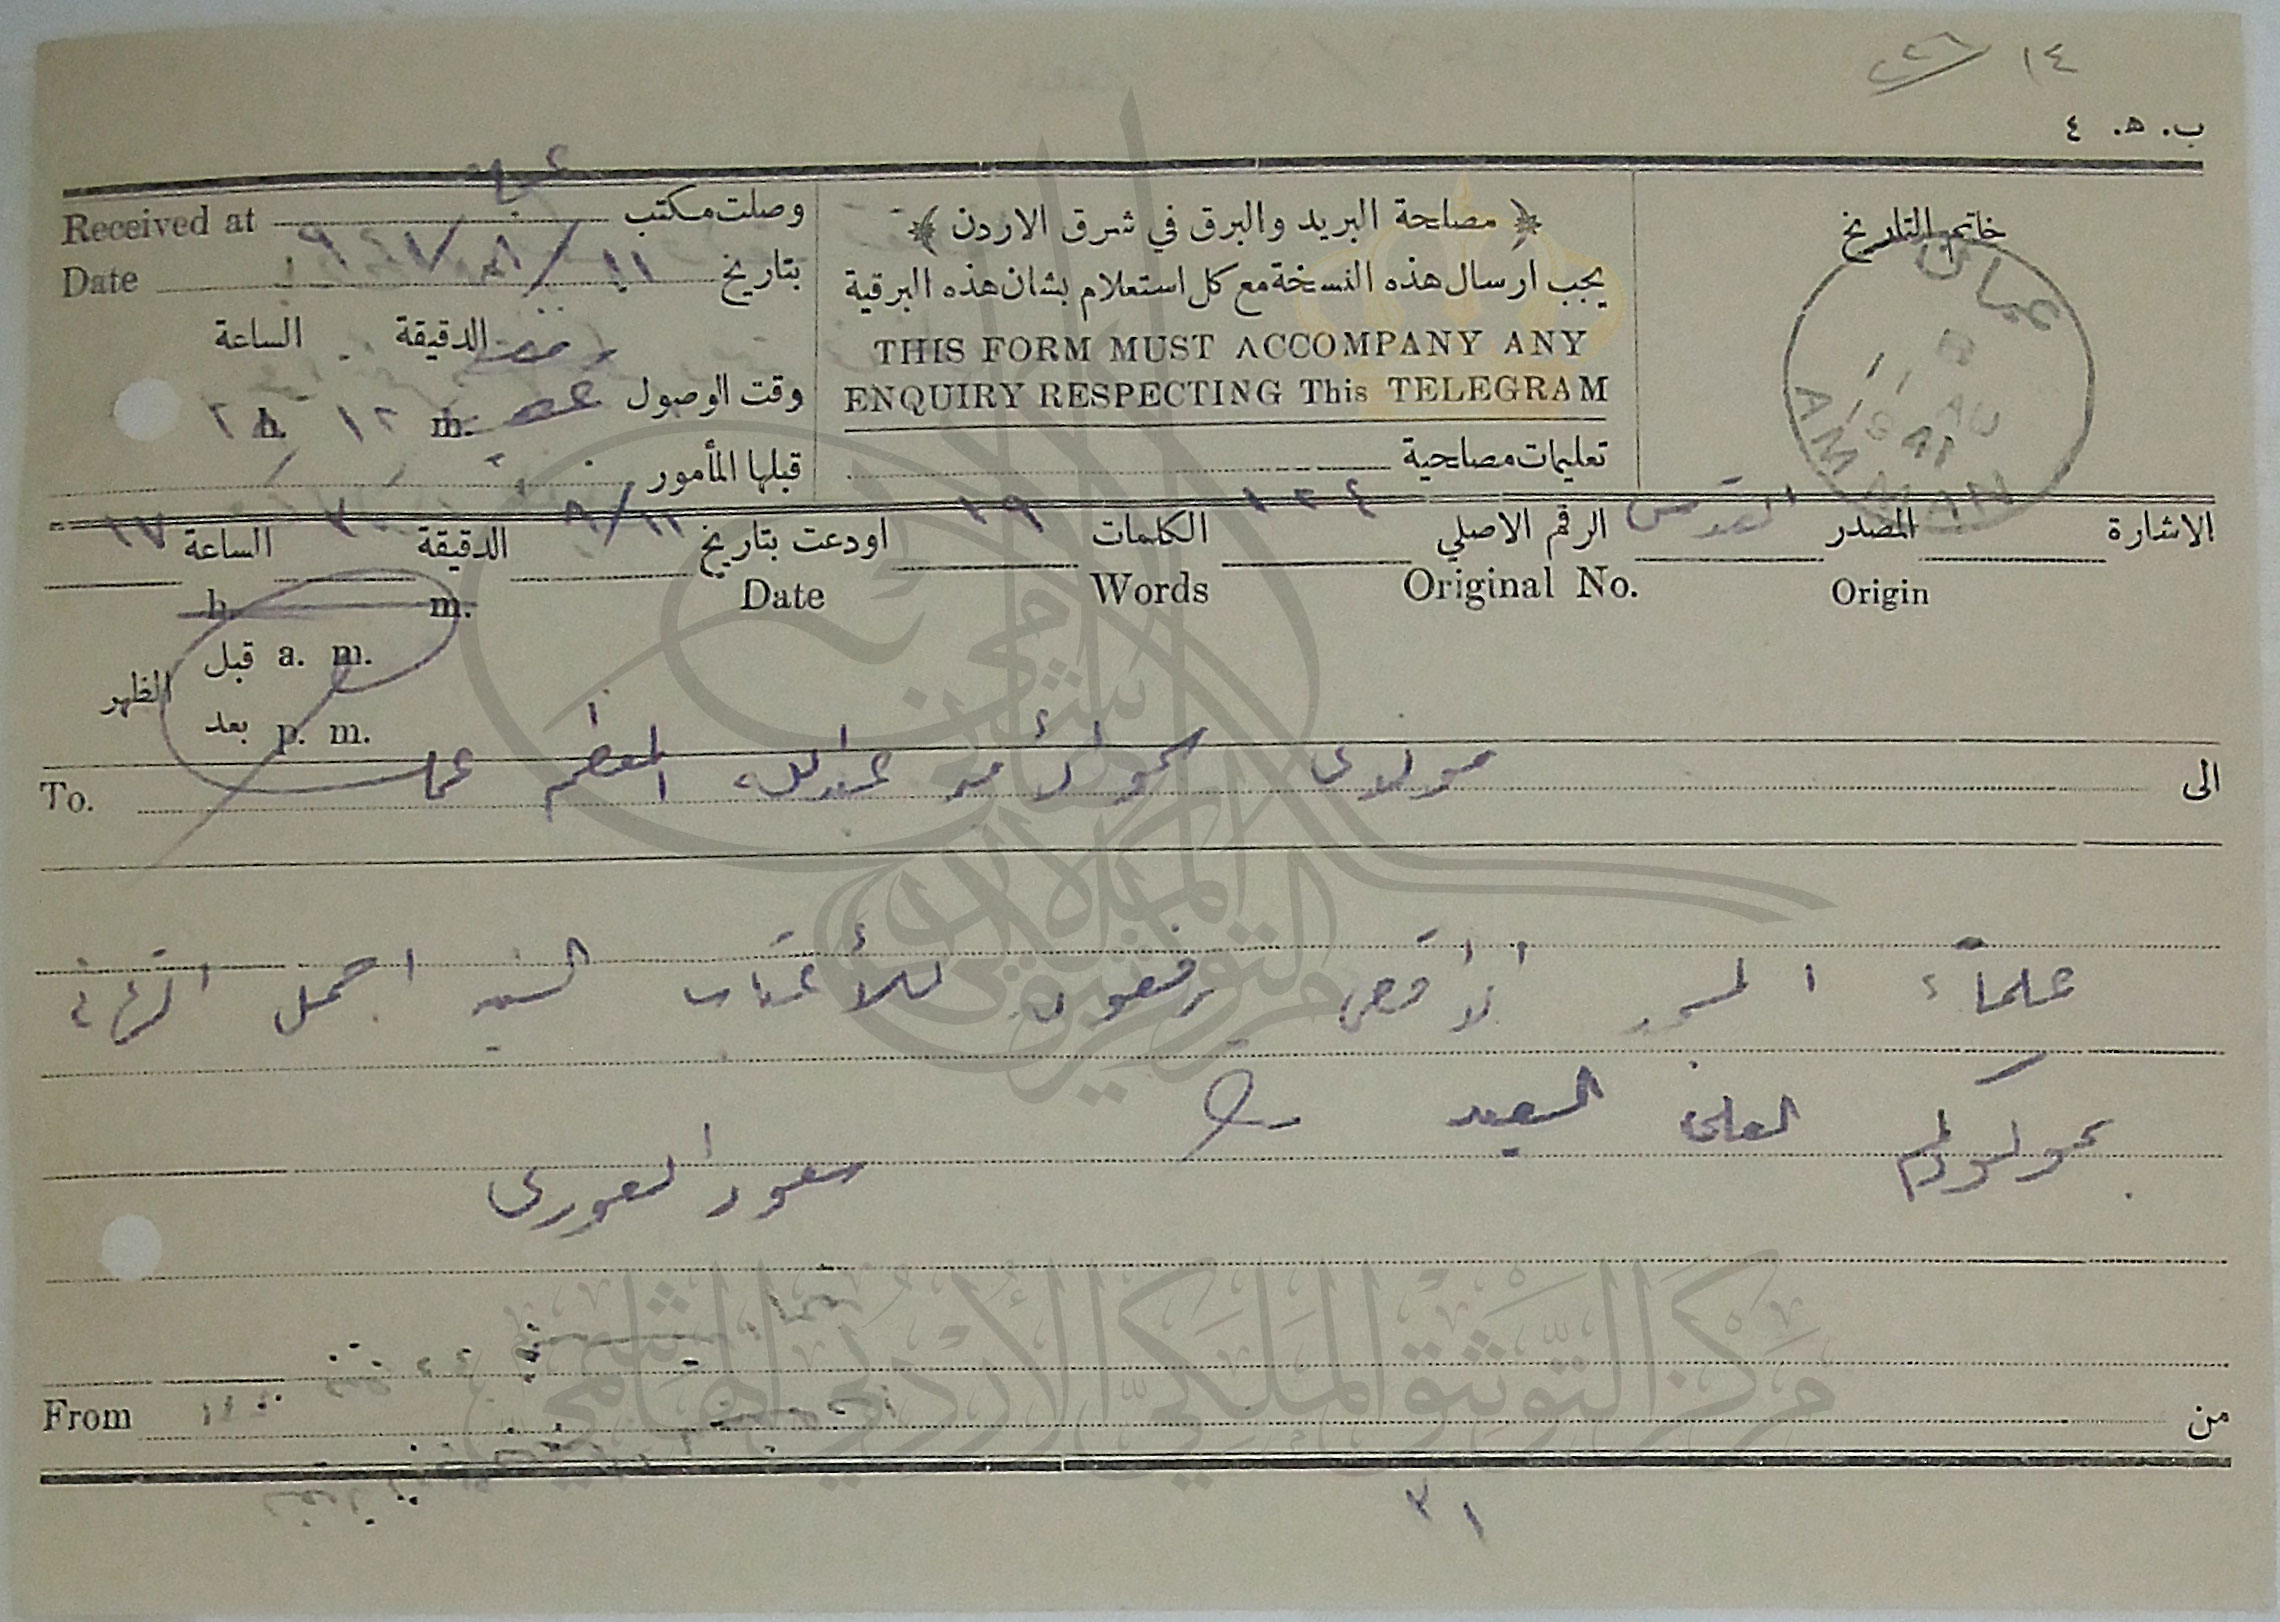 ١٤
ب. ه. ٤
خاتم التاريخ
عمان
11 AU
1941
AMMAN
﴿ مصلحة البريد والبرق في شرق الاردن ﴾
يجب ارسال هذه النسخة مع كل استعلام بشان هذه البرقية
THIS FORM MUST ACCOMPANY ANY
ENQUIRY RESPECTING This TELEGRAM
تعليمات مصلحية
وصلت مكتب Received at
بتاريخ ١١/٨/ Date
الدقيقة الساعة
وقت الوصول m. ١٢ h. ٢
قبلها المأمور
الاشارة المصدر القدس الرقم الاصلي ١٢٤ الكلمات ١٩ اودعت بتاريخ ١١/٨ الدقيقة الساعة ١٧
Origin Original No. Words Date m. h.
قبل a. m.
الظهر
بعد p. m.
الى مولاي سمو الأمير عبدالله المعظم عمان To.
علماء المسجد الأقصى يرفعون للأعتاب السنيه اجمل التهاني
بمولودكم الملكي السعيد
سعود العوري
من From
٣١
مركز التوثيق الملكي الأردني الهاشمي